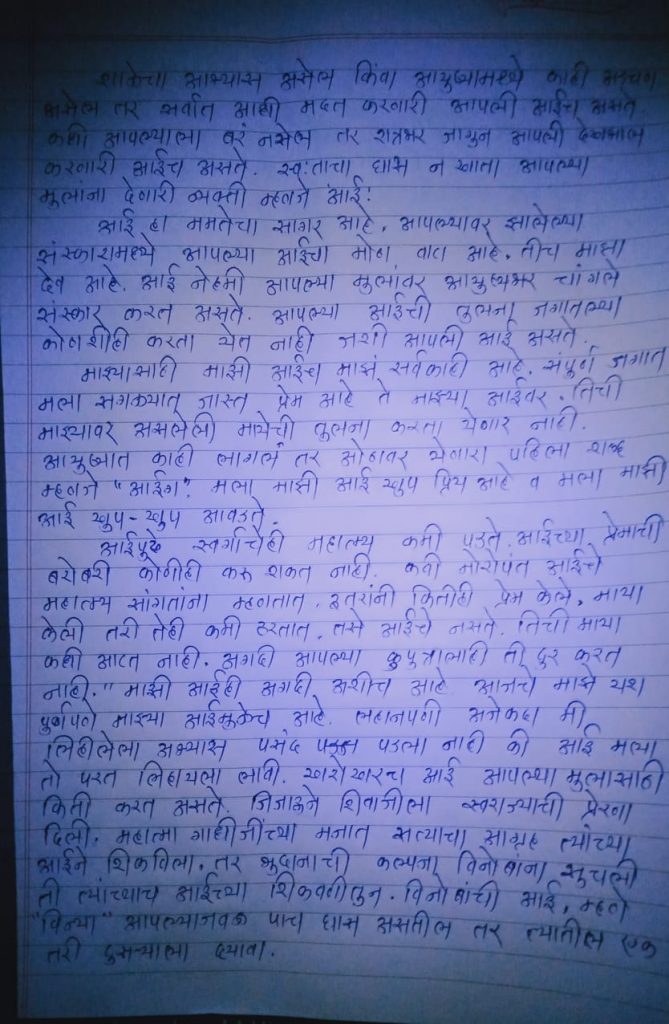 शाळेचा अभ्यास असेल किंवा आयुष्यामध्ये काही अडचण
असेल तर सर्वात आधी मदत करणारी आपली आईच असते
कधी आपल्याला बरं नसेल तर रात्रभर जागुन आपली देखभाल
करणारी आईच असते. स्व:ताचा घास न खाता आपल्या
मुलांना देणारी व्यक्ती म्हणजे आई!
आई हा ममतेचा सागर आहे. आपल्यावर झालेल्या
संस्कारामध्ये आपल्या आईचा मोठा वाटा आहे. तीच माझा
देव आहे. आई नेहमी आपल्या मुलांवर आयुष्यभर चांगले
संस्कार करत असते. आपल्या आईची तुलना जगातल्या
कोणाशीही करता येत नाही जशी आपली आई असते.
माझ्यासाठी माझी आईच माझं सर्वकाही आहे. संपूर्ण जगात
मला सगळ्यात जास्त प्रेम आहे ते माझ्या आईवर. तिची
माझ्यावर असलेली मायेची तुलना करता येणार नाही.
आयुष्यात काही लागलं तर ओठावर येणारा पहिला शब्द
म्हणजे "आईग". मला माझी आई खुप प्रिय आहे व मला माझी
आई खुप-खुप आवडते.
आईपुढे स्वर्गाचेही महात्म्य कमी पडते. आईच्या प्रेमाची
बरोबरी कोणीही करू शकत नाही. कवी मोरोपंत आईचे
महात्म्य सांगतांना म्हणतात. इतरांनी कितीही प्रेम केले, माया
केली तरी तेही कमी ठरतात. तसे आईचे नसते. तिची माया
कधी आटत नाही. अगदी आपल्या कुपुत्रालाही ती दुर करत
नाही." माझी आईही अगदी अशीच आहे. आजचे माझे यश
पुर्णपणे माझ्या आईमुळेच आहे. लहानपणी अनेकदा मी
लिहीलेला अभ्यास पसंद पडला नाही की आई मला
तो परत लिहायला लावी. खरोखरच आई आपल्या मुलासाठी
किती करत असते. जिजाऊने शिवाजीला स्वराज्याची प्रेरणा
दिली. महात्मा गाधीजींच्या मनात सत्याचा आग्रह त्यांच्या
आईने शिकविला. तर भुदानाची कल्पना विनोबांना सुचली
ती त्यांच्याच आईच्या शिकवणीतुन. विनोबांची आई, म्हणे
"विन्या" आपल्याजवळ पाच घास असतील तर त्यातील एक
तरी दुसऱ्याला द्यावा.